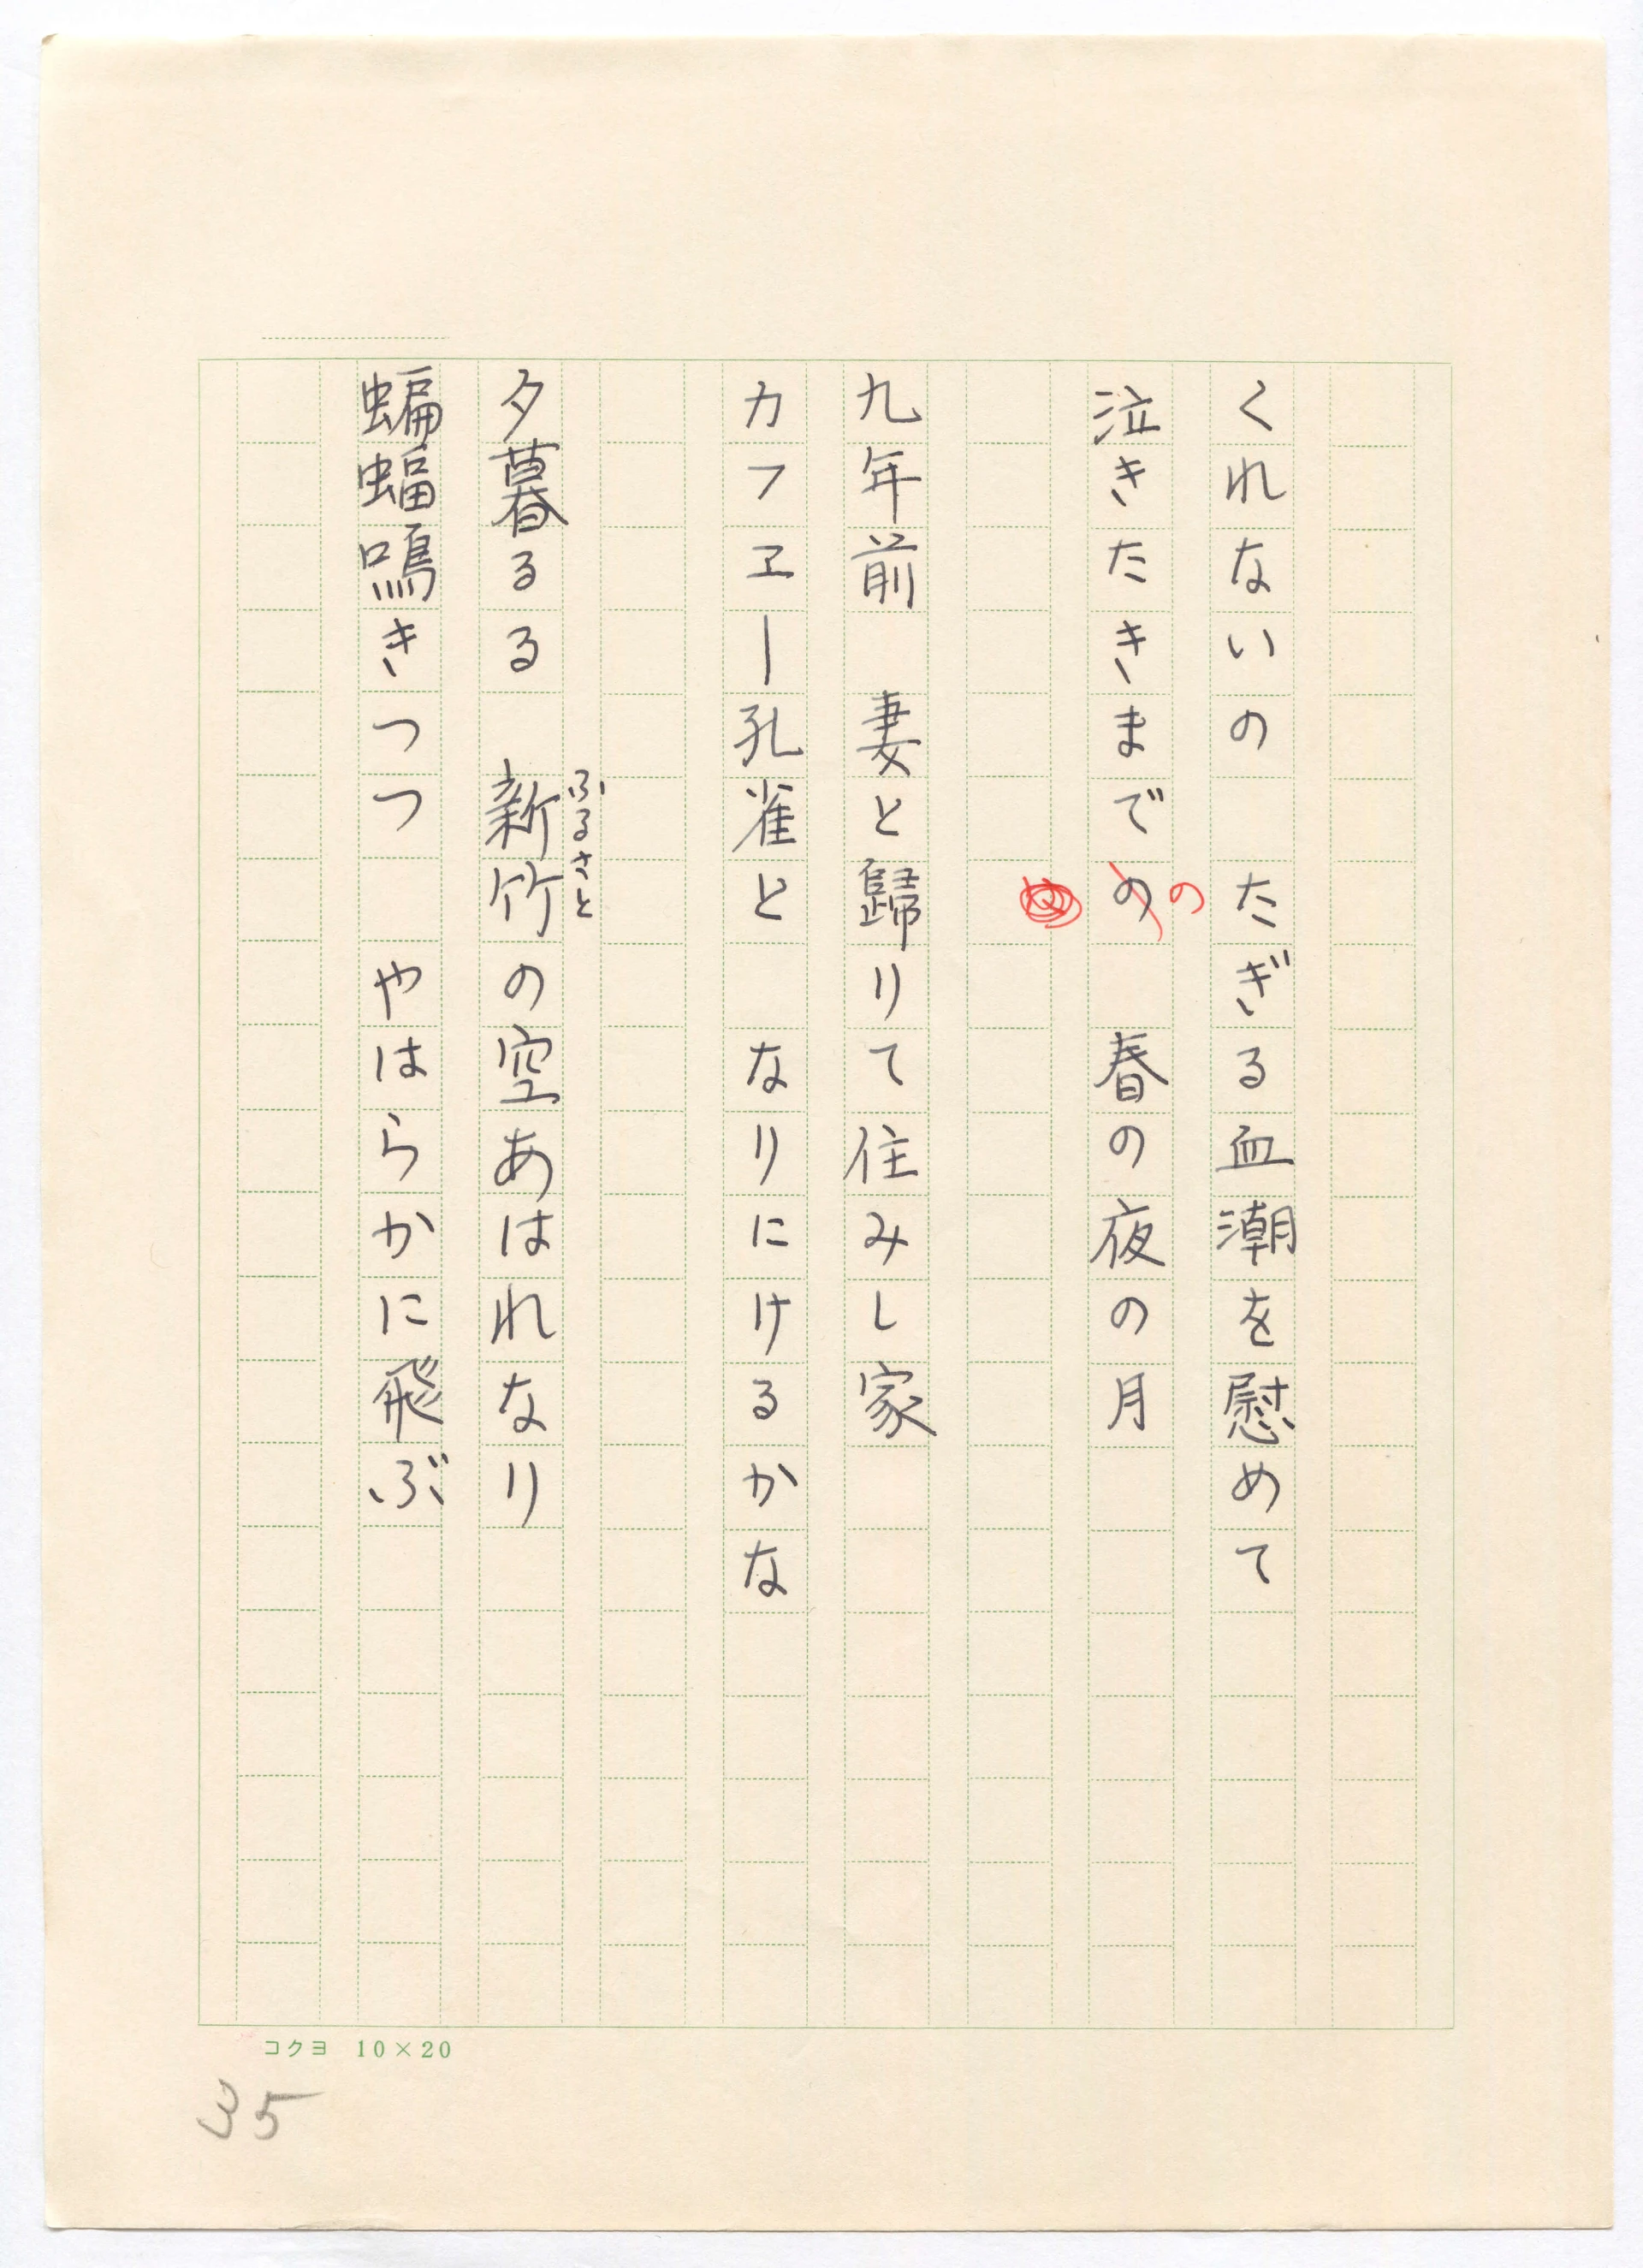 くれないの　たぎる血潮を慰めて
泣きたきまでの　春の夜の月
の
九年前　妻と歸りて住みし家
カフエー孔雀と　なりにけるかな
夕暮るる　新竹の空あはれなり
ふるさと
蝙蝠鳴きつつ　やはらかに飛ぶ
コクヨ 10×20
35